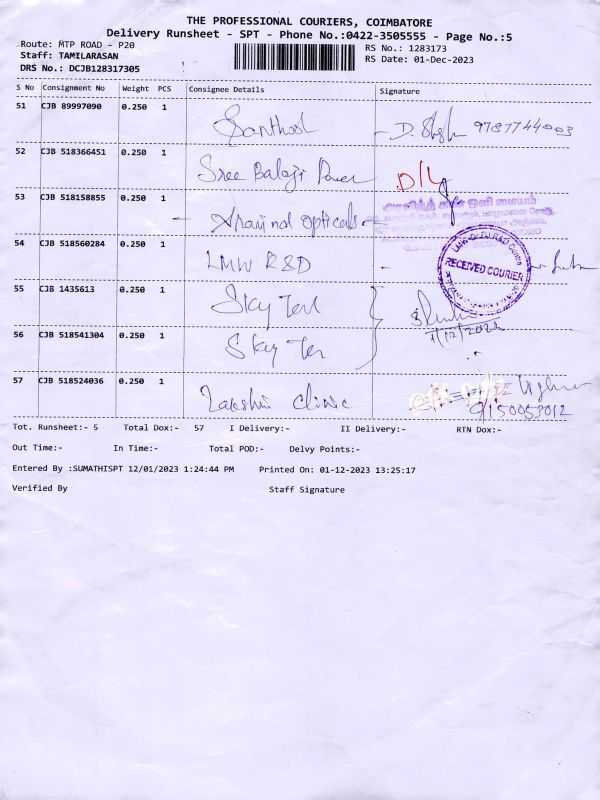 THE PROFESSIONAL COURIERS, COIMBATORE
Delivery Runsheet - SPT - Phone No.:0422-3505555 - Page No.:5
Route: MTP ROAD - P20
RS No.: 1283173
Staff: TAMILARASAN
RS Date: 01-Dec-2023
DRS No.: DCJB128317305
S No Consignment No Weight PCS Consignee Details Signature
51 CJB 89997090 0.250 1 Santhosh 9787744003
52 CJB 518366451 0.250 1 Sree Balaji Power D/L
53 CJB 518158855 0.250 1 - Aravind Opticals -
54 CJB 518560284 0.250 1 LMW R&D -
RECEIVED COURIER
55 CJB 1435613 0.250 1 Sky Tex
1/12/2022
56 CJB 518541304 0.250 1 Sky Tex
57 CJB 518524036 0.250 1 Lakshmi Clinic
9150053012
Tot. Runsheet:- 5 Total Dox:- 57 I Delivery:- II Delivery:- RTN Dox:-
Out Time:- In Time:- Total POD:- Delvy Points:-
Entered By :SUMATHISPT 12/01/2023 1:24:44 PM Printed On: 01-12-2023 13:25:17
Verified By Staff Signature